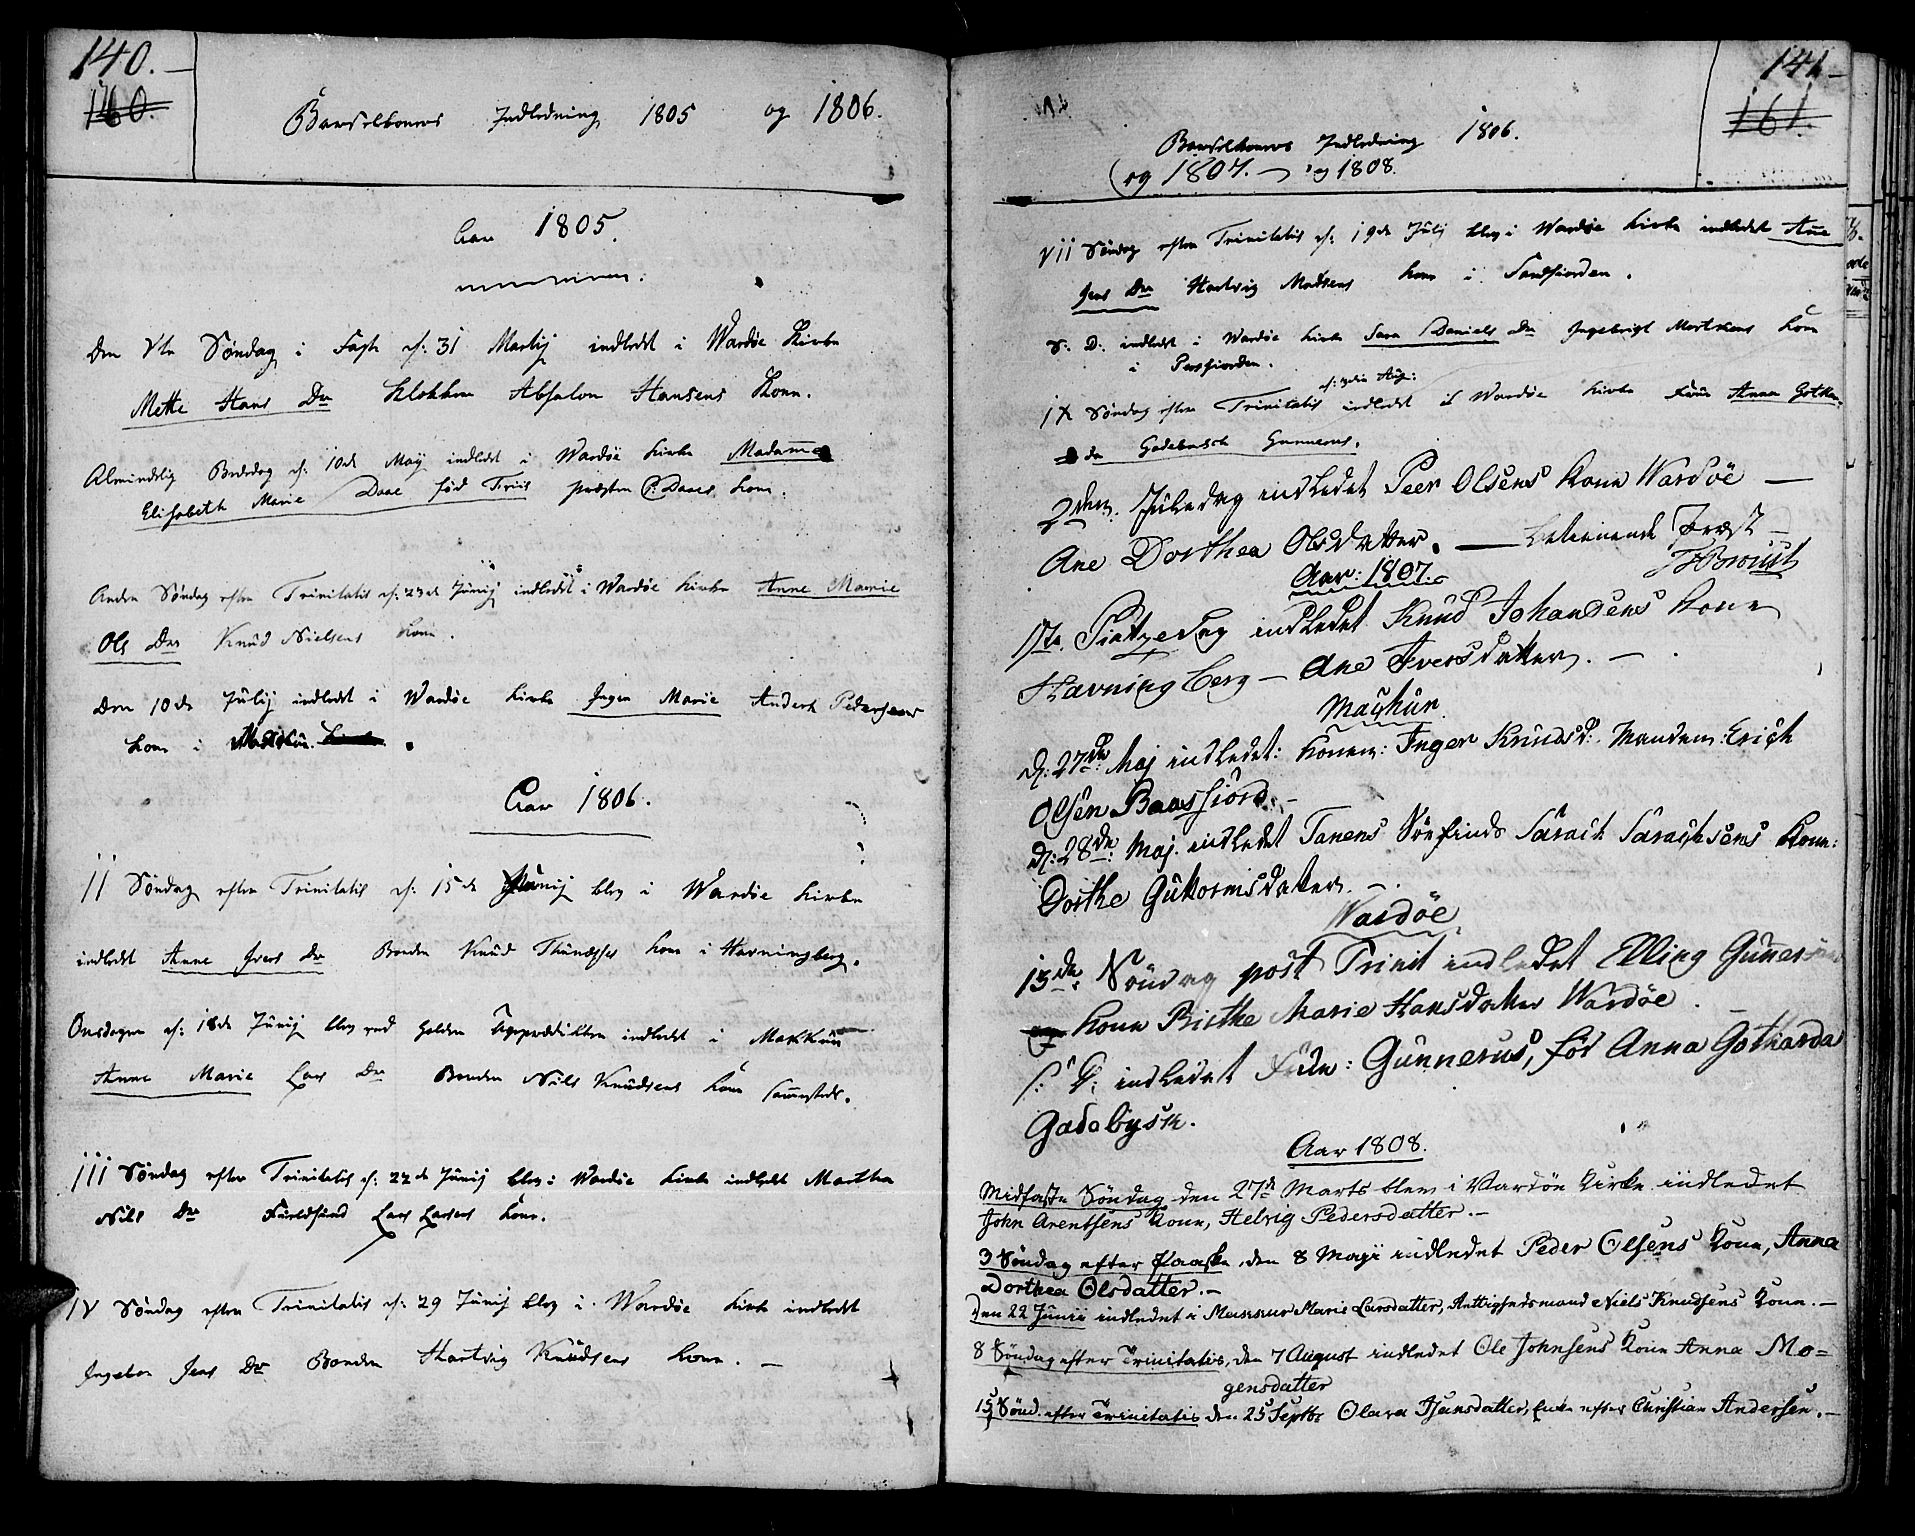 140.
160.
Barselkoners Indledning 1805 og 1806.
Aar 1805.
Den Vte Søndag i Faste d: 31 Martij indledt i Wardøe Kirke
Mette Hans Dr Klokker Absalon Hansens Kone.
Almindelig Bededag d: 10de Maij indledt i Wardøe Kirke Madamme
Elisabeth Marie Daae fød præsten P: Daaes Kone.
Anden Søndag efter Trinitatis d: 23de Junij indledt i Wardøe Kirke Anne Marie
Ols Dr Knud Nielsens Kone.
Den 10de Julij indledt i Wardøe Kirke Inger Marie Anders Pedersens
Kone i
Aar 1806.
II Søndag efter Trinitatis d: 15de Junij blev i Wardøe Kirke
indledt Anne Ivers Dr Bonden Knud Kone i Havningberg.
Onsdagen d: 18de Junij blev ved holden indledt i Makkur
Anne Marie Lars Dr Bonden Nils Knudsens Kone sammesteds.
III Søndag efter Trinitatis d: 22de Junij blev i Wardøe Kirke indledt Martha
Nils Dr Lars Larsens Kone.
IV Søndag efter Trinitatis d: 29 Junij blev i Wardøe Kirke indledt
Ingebor Jens Dr Bonden Hartvig Knudsens Kone. -
141
161.
Barselkoners Indledning 1806.
(og 1807. og 1808.
VII Søndag efter Trinitatis d: 19de Julij blev i Wardøe Kirke indledt Ane
Jens Dr Hartvig Madsens Kone i Sandfiorden.
S: D: indledt i Wardøe Kirke Sara Daniels Dr Ingebrigt Mortensens Kone
i Persfiorden.
IX Søndag efter Trinitatis indledt i Wardøe Kirke Frue Anna Gothar-
da Gadebusch Gunnerus.
2den Juledag indledet Peer Olsens Kone Wardøe —
Ane Dorthea Olsdatter. — Præst
Aar: 1807.
1ste Pintzedag indledet Knud Johansens Kone
Havningberg - Ane Iversdatter. -
Makkur
d: 27de Maj indledet: Konen: Inger Knudsd: Manden: Erich
Olsen Baasfiord. -
d: 28de Maj indledet Tanens Søefinds Sarach Sarachsens Kone:
Dorthe Guttormsdatter. -
Wardøe
15de Søndag post Trinit indledet Elling Gunnersens
Kone Birthe Marie Hansdatter Wardøe.
S: D: indledet Frue: Gunnerus, fød Anna Gotharda
Gadebysch.
Aar 1808.
Midfaste Søndag den 27de Marts blev i Vardøe Kirke indledet
John Arentsens Kone, Helvig Pedersdatter. -
3 Søndag efter Paaske den 8 Maji indledet Peder Olsens Kone, Anna
Dorthea Olsdatter. -
Den 22 Junii indledet i Makkur Marie Larsdatter, Niels Knudsens Kone. -
8 Søndag efter Trinitatis, den 7 August indledet Ole Johnsens Kone Anna Mo=
gensdatter
15 Sønd. efter Trinitatis den 25 Septbr Olava Hansdatter, Enke efter Christian Andersen. -